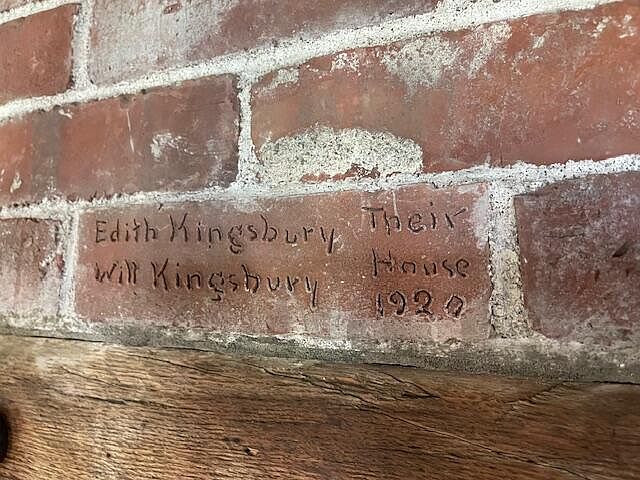 Edith Kingsbury Their
Will Kingsbury House
1920